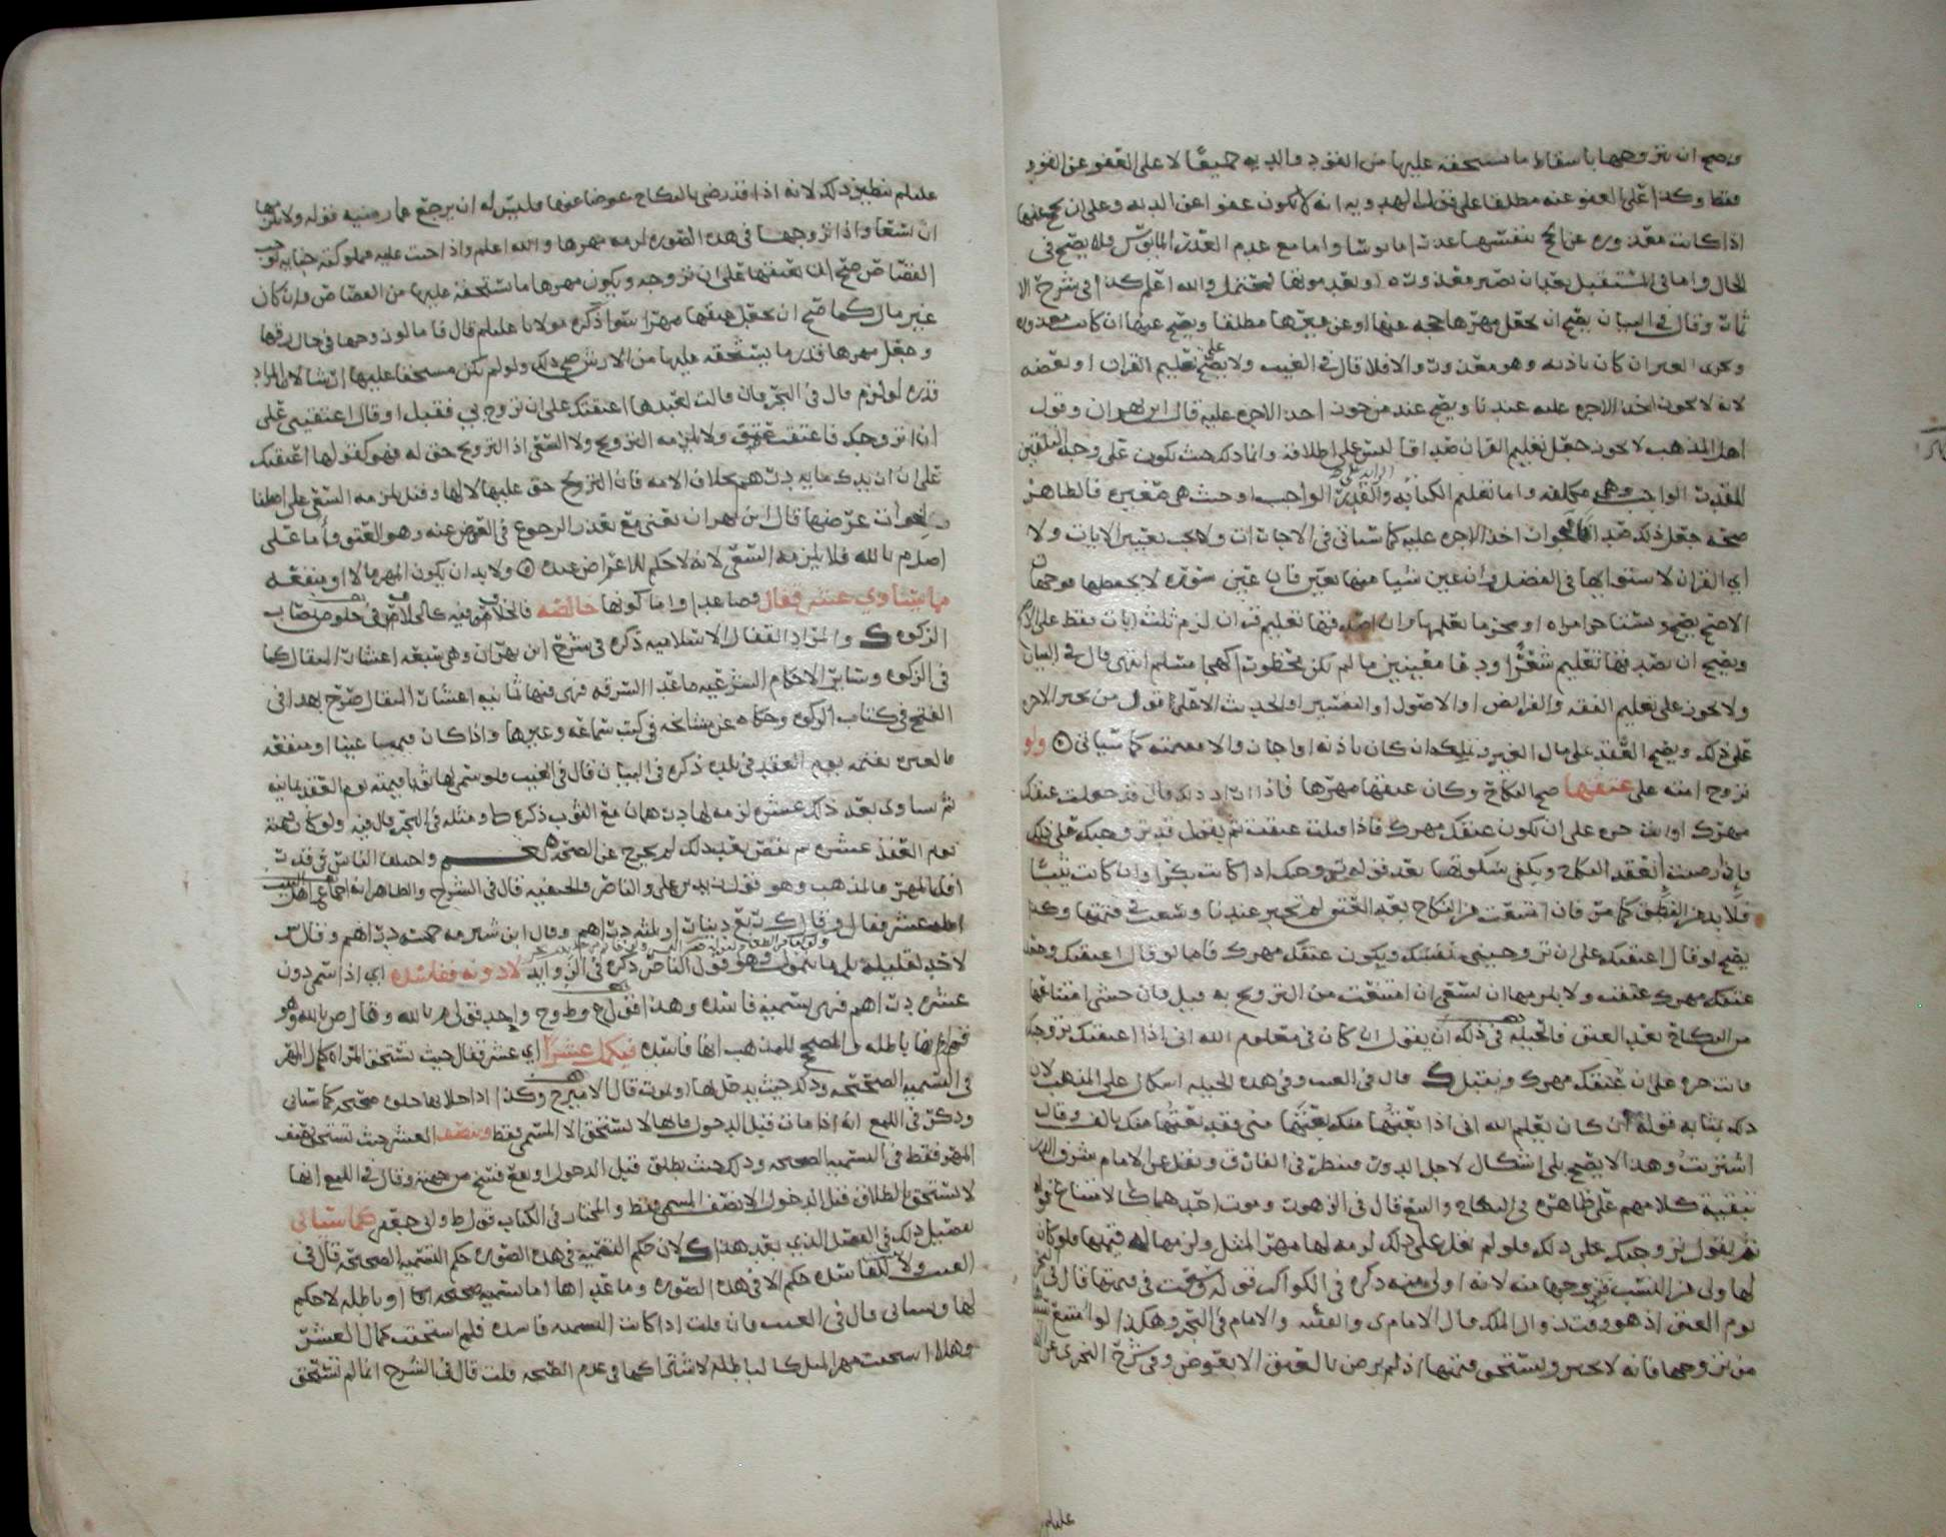 ويصح ان يتزوجها باسقاط ما يستحقه عليها من القود والديه جميعًا لا على العفو عن القود
فقط وكذا على العفو عنه مطلقا على قول الهدويه انه لا يكون عفوا عن الديه وعلى ان يحج عنها
اذا كانت معذوره عن الحج بنفسها عذرا مايوسا واما مع عدم العذر المايوس فلا يصح في
الحال واما في المستقبل بعد ان تصير معذورة او بعد موتها والله اعلم كذا في شرح الا
ثمار وقال في البيان يصح ان يجعل مهرها حجه عنها او عن غيرها مطلقا ويصح عنها ان كانت معذوره
وعن الغير ان كان باذنه وهو معذور والا فلا قال في الغيث ولا يصح على تعليم القران او بعضه
لانه لا يجوز اخذ الاجره عليه عندنا ويصح عند من جوز اخذ الاجره عليه قال ابن بهران وقول
اهل المذهب لا يجوز جعل تعليم القران صداقا ليس على اطلاقه وانما ذلك حيث يكون على وجه التلقين
للقدر الواجب وهي مكلفه واما تعليم الكتابه والقدر الزايد على الواجب او حيث هي صغيره فالظاهر
صحة جعل ذلك صداقا لجواز اخذ الاجره عليه كما سياتي في الاجارات ولا يجب تعيين الايات ولا
اي القران لاستوايها في الفضل وان عين شيا منها تعين فان عين سوره لا يحفظها فوجهان
الاصح يصح
ويصح ان يصدقها تعليم شعرًا ودعا مقيدين ما لم تكن محظورا كهجا مسلم انتهى قال في البيان
ولا يجوز على تعليم الفقه والفرائض او الاصول او التفسير او الحديث الا على قول من يجيز الاجره
على ذلك ويصح العقد على مال الغير ويملك ان كان باذنه او اجاز والا فقيمته كما سياتي ولو
تزوج امته على عتقها صح النكاح وكان عتقها مهرها فاذا اراد ذلك قال قد جعلت عتقك
مهرك او انت حره على ان يكون عتقك مهرك فاذا قبلت عتقت ثم يقول قد تزوجتك على ذلك
فاذا رضيت انعقد النكاح ويكفي سكوتها بعد قوله تزوجتك اذا كانت بكرًا وان كانت ثيبًا
فلا بد من النطق كما مر فان امتنعت من النكاح بعد العتق لم تجبر عندنا وسعت في قيمتها وكذا
يصح لو قال اعتقتك على ان تزوجيني نفسك ويكون عتقك مهرك فاما لو قال اعتقتك وجعلت
عتقك مهرك عتقت ولا يلزمها ان تسعى ان امتنعت من التزويج به قيل فان خشي امتناعها
من النكاح بعد العتق فالحيله في ذلك ان يقول ان كان في معلوم الله اني اذا اعتقتك تزوجتك
فانت حره على ان عتقك مهرك وتقبل قال في الغيث وفي هذه الحيله اشكال على المذهب لان
ذلك بمثابه قوله ان كان يعلم الله اني اذا بعتها منك بعتها مني فقد بعتها منك بالف وقال
اشتريت وهذا لا يصح بلى اشكال لاجل الدور فينظر في الفارق ونقل عن الامام شرف الدين
تبقية كلامهم على ظاهره في النكاح والبيع قال في الزهور وموت احدهما كالامتناع قوله
ثم يقول تزوجتك على ذلك فلو لم يقل على ذلك لزمه لها مهر المثل ولزمها له قيمتها فلو كان
لها ولي من النسب تزوجها منه لانه اولى منه ذكره في الكواكب قوله وسعت في قيمتها قال في البحر
يوم العتق اذ هو وقت زوال الملك قال الامام ى والفقيه والامام في البحر وهكذا لو امتنع السيد
من تزوجها فانه لا يجبر ويستحق قيمتها اذ لم يرض بالعتق الا بعوض وفي شرح النجري عن
عليلم
عليلم ينطبق ذلك لانه اذا قد رضي بالنكاح عوضا عنها فليس له ان يرجع عما رضيه قوله ولا يلزمها
ان تسعا واذا تزوجها في هذه الصوره لزمه مهرها والله اعلم واذا جنت عليه مملوكته جنايه توجب
القصاص صح ان يعتقها على ان تزوجه ويكون مهرها ما يستحقه عليها من القصاص وان كان
غير مال كما صح ان يجعل عتقها مهرا سوا ذكره مولانا عليلم قال فاما لو زوجها في حال رقها
وجعل مهرها قدر ما يستحقه عليها من الارش صح ذلك ولو لم يكن مستحقا عليها ارشا لان المراد
قدره لو لزم مال في البحر فان قالت لعبدها اعتقتك على ان تزوج بي فقبل او قال اعتقيني على
ان اتزوجك فاعتقت عتق ولا يلزمه التزويج ولا السعي اذ التزويج حق له فهو كقولها اعتقتك
على ان ازيدك مايه درهم بخلاف الامه فان التزويج حق عليها لا لها وقيل يلزمه السعي على اصلنا
لفوات غرضها قال ابن بهران يعني مع تعذر الرجوع في العوض عنه وهو العتق وأما على
اصل م بالله فلا يلزمه السعي لانه لا حكم للاغراض عنده ولا بد ان يكون المهر مالا او منفعه
مما يساوي عشر قفال فصاعدا واما كونها خالصه فالخلاف فيه كالخلاف في خلوص نصاب
الزكوه والمراد القفال الاسلاميه ذكره في شرح ابن بهران وهي سبعه اعشار المثقال كما
في الزكوه وسائر الاحكام الشرعيه ما عدا السرقه فهي فيها ثمانيه اعشار المثقال صرح بهذا في
الفتح في كتاب الزكوه وحكاه عن مشائخه في كتب سماعه وغيرها واذا كان قيميا عينا او منفعه
فالعبره بقيمته يوم العقد في بلده ذكره في البيان قال في الغيث فلو سمى لها ثوبا قيمته يوم العقد ثمانيه
ثم ساوى بعد ذلك عشره لزمه لها درهمان مع الثوب ذكره ط ومثله في البحر قال فيه ولو كان قيمته
يوم العقد عشره ثم نقص بعد ذلك لم يخرج عن الصحه واختلف الناس في قدر
اقل المهر فالمذهب وهو قول زيد بن علي والناصر والحنفيه قال في الشرح والظاهر انه اجماع اهل البيت
اقله عشر قفال وقال ك ربع دينار او ثلثه دراهم وقال ابن شبرمه خمسه دراهم وقال ش
لا حد لقليله بل ما يتمول وهو قول الناصر ذكره في الزوايد لا دونه ففاسده اي اذا سمى دون
عشره دراهم فهي تسميه فاسده وهذا قول ع وط وح واحد قولي م بالله وقال ص بالله وهو
قول م انها باطله والمصحح للمذهب انها فاسده فيكمل عشرًا اي عشر قفال حيث تستحق المراه كمال المهر
في التسميه الصحيحه وذلك حيث يدخل بها او يموت قال الامير ح وكذا اذا خلا بها خلوه صحيحه كما سياتي
وذكر في اللمع انه اذا مات قبل الدخول فانها لا تستحق الا المسمى فقط وينصف العشر حيث تستحق نصف
المهر فقط في التسميه الصحيحه وذلك حيث يطلق قبل الدخول او يقع فسخ من جهته وقال في اللمع انها
لا تستحق بالطلاق قبل الدخول الا نصف المسمى فقط والمختار في الكتاب قول ط وابي جعفر كما سياتي
تفصيل ذلك في الفصل الذي بعد هذا لان حكم التسميه في هذه الصوره حكم التسميه الصحيحه قال في
الغيث ولا للفاسده حكم الا في هذه الصوره وما عداها اما تسميه صحيحه او باطله لا حكم
لها وسياتي قال في الغيث فان قلت اذا كانت التسميه فاسده فلم استحقت كمال العشر
وهلا استحقت مهر المثل كالباطله لاشتراكهما في عدم الصحه قلت قال في الشرح انما لم تستحق